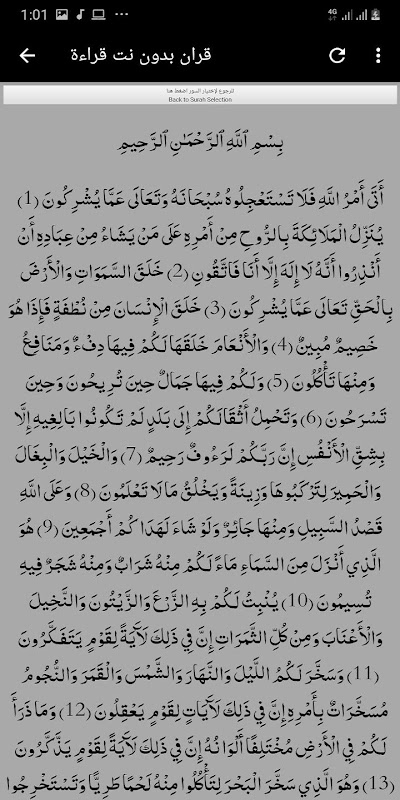 1:01
4G
قران بدون نت قراءة
للرجوع لإختيار السور اضغط هنا
Back to Surah Selection
بِسْمِ اللَّهِ الرَّحْمَٰنِ الرَّحِيمِ
أَتَى أَمْرُ اللَّهِ فَلَا تَسْتَعْجِلُوهُ سُبْحَانَهُ وَتَعَالَى عَمَّا يُشْرِكُونَ (1)
يُنَزِّلُ الْمَلَائِكَةَ بِالرُّوحِ مِنْ أَمْرِهِ عَلَى مَنْ يَشَاءُ مِنْ عِبَادِهِ أَنْ
أَنْذِرُوا أَنَّهُ لَا إِلَهَ إِلَّا أَنَا فَاتَّقُونِ (2) خَلَقَ السَّمَوَاتِ وَالْأَرْضَ
بِالْحَقِّ تَعَالَى عَمَّا يُشْرِكُونَ (3) خَلَقَ الْإِنْسَانَ مِنْ نُطْفَةٍ فَإِذَا هُوَ
خَصِيمٌ مُبِينٌ (4) وَالْأَنْعَامَ خَلَقَهَا لَكُمْ فِيهَا دِفْءٌ وَمَنَافِعُ
وَمِنْهَا تَأْكُلُونَ (5) وَلَكُمْ فِيهَا جَمَالٌ حِينَ تُرِيحُونَ وَحِينَ
تَسْرَحُونَ (6) وَتَحْمِلُ أَثْقَالَكُمْ إِلَى بَلَدٍ لَمْ تَكُونُوا بَالِغِيهِ إِلَّا
بِشِقِّ الْأَنْفُسِ إِنَّ رَبَّكُمْ لَرَءُوفٌ رَحِيمٌ (7) وَالْخَيْلَ وَالْبِغَالَ
وَالْحَمِيرَ لِتَرْكَبُوهَا وَزِينَةً وَيَخْلُقُ مَا لَا تَعْلَمُونَ (8) وَعَلَى اللَّهِ
قَصْدُ السَّبِيلِ وَمِنْهَا جَائِرٌ وَلَوْ شَاءَ لَهَدَاكُمْ أَجْمَعِينَ (9) هُوَ
الَّذِي أَنْزَلَ مِنَ السَّمَاءِ مَاءً لَكُمْ مِنْهُ شَرَابٌ وَمِنْهُ شَجَرٌ فِيهِ
تُسِيمُونَ (10) يُنْبِتُ لَكُمْ بِهِ الزَّرْعَ وَالزَّيْتُونَ وَالنَّخِيلَ
وَالْأَعْنَابَ وَمِنْ كُلِّ الثَّمَرَاتِ إِنَّ فِي ذَلِكَ لَآيَةً لِقَوْمٍ يَتَفَكَّرُونَ
(11) وَسَخَّرَ لَكُمُ اللَّيْلَ وَالنَّهَارَ وَالشَّمْسَ وَالْقَمَرَ وَالنُّجُومُ
مُسَخَّرَاتٌ بِأَمْرِهِ إِنَّ فِي ذَلِكَ لَآيَاتٍ لِقَوْمٍ يَعْقِلُونَ (12) وَمَا ذَرَأَ
لَكُمْ فِي الْأَرْضِ مُخْتَلِفًا أَلْوَانُهُ إِنَّ فِي ذَلِكَ لَآيَةً لِقَوْمٍ يَذَّكَّرُونَ
(13) وَهُوَ الَّذِي سَخَّرَ الْبَحْرَ لِتَأْكُلُوا مِنْهُ لَحْمًا طَرِيًّا وَتَسْتَخْرِجُوا